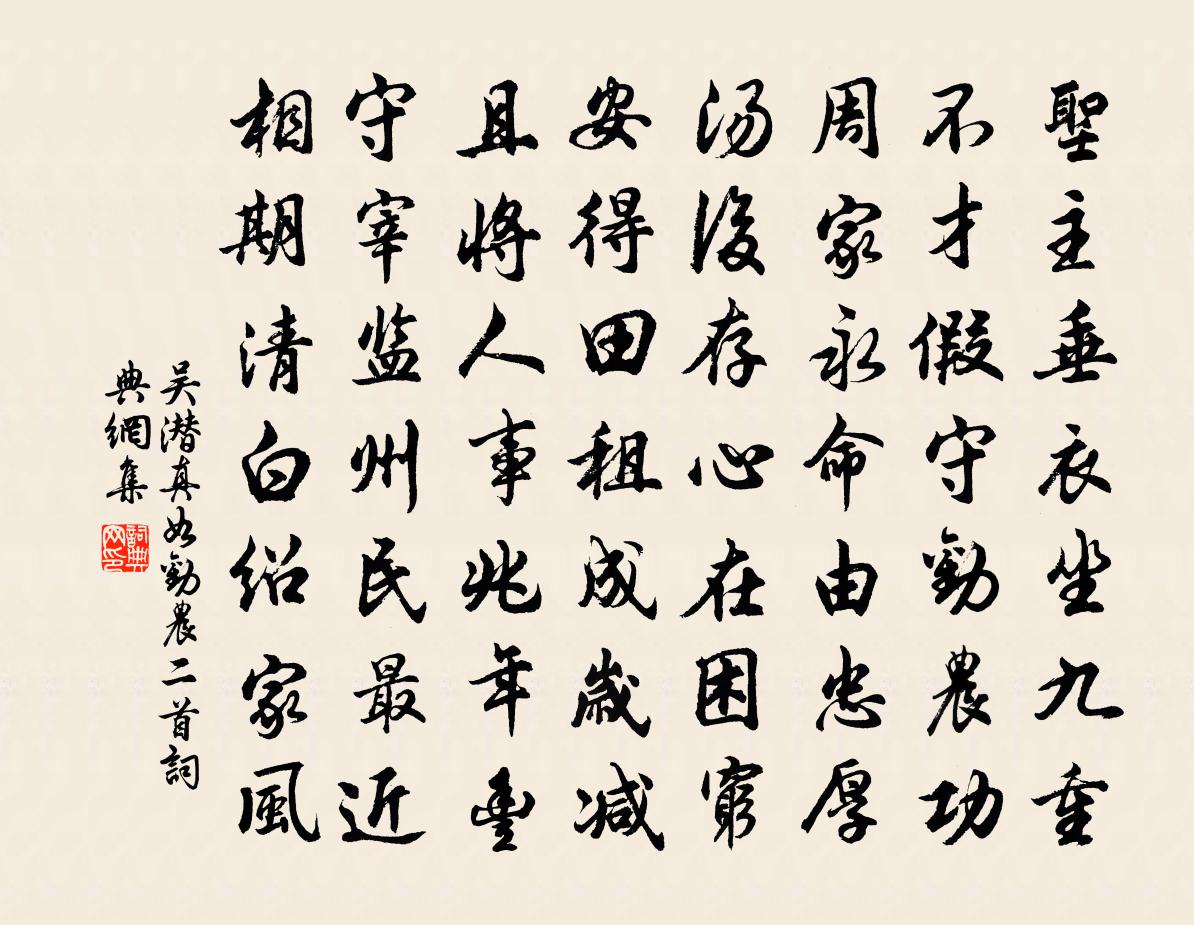 聖主垂衣坐九重
不才假守勸農功
周家永命由忠厚
湯後存心在困窮
安得田租成歲減
且將人事兆年豐
守宰监州民最近
相期清白绍家風
吴潜真如勸農二首詞
典網集
詞典网印